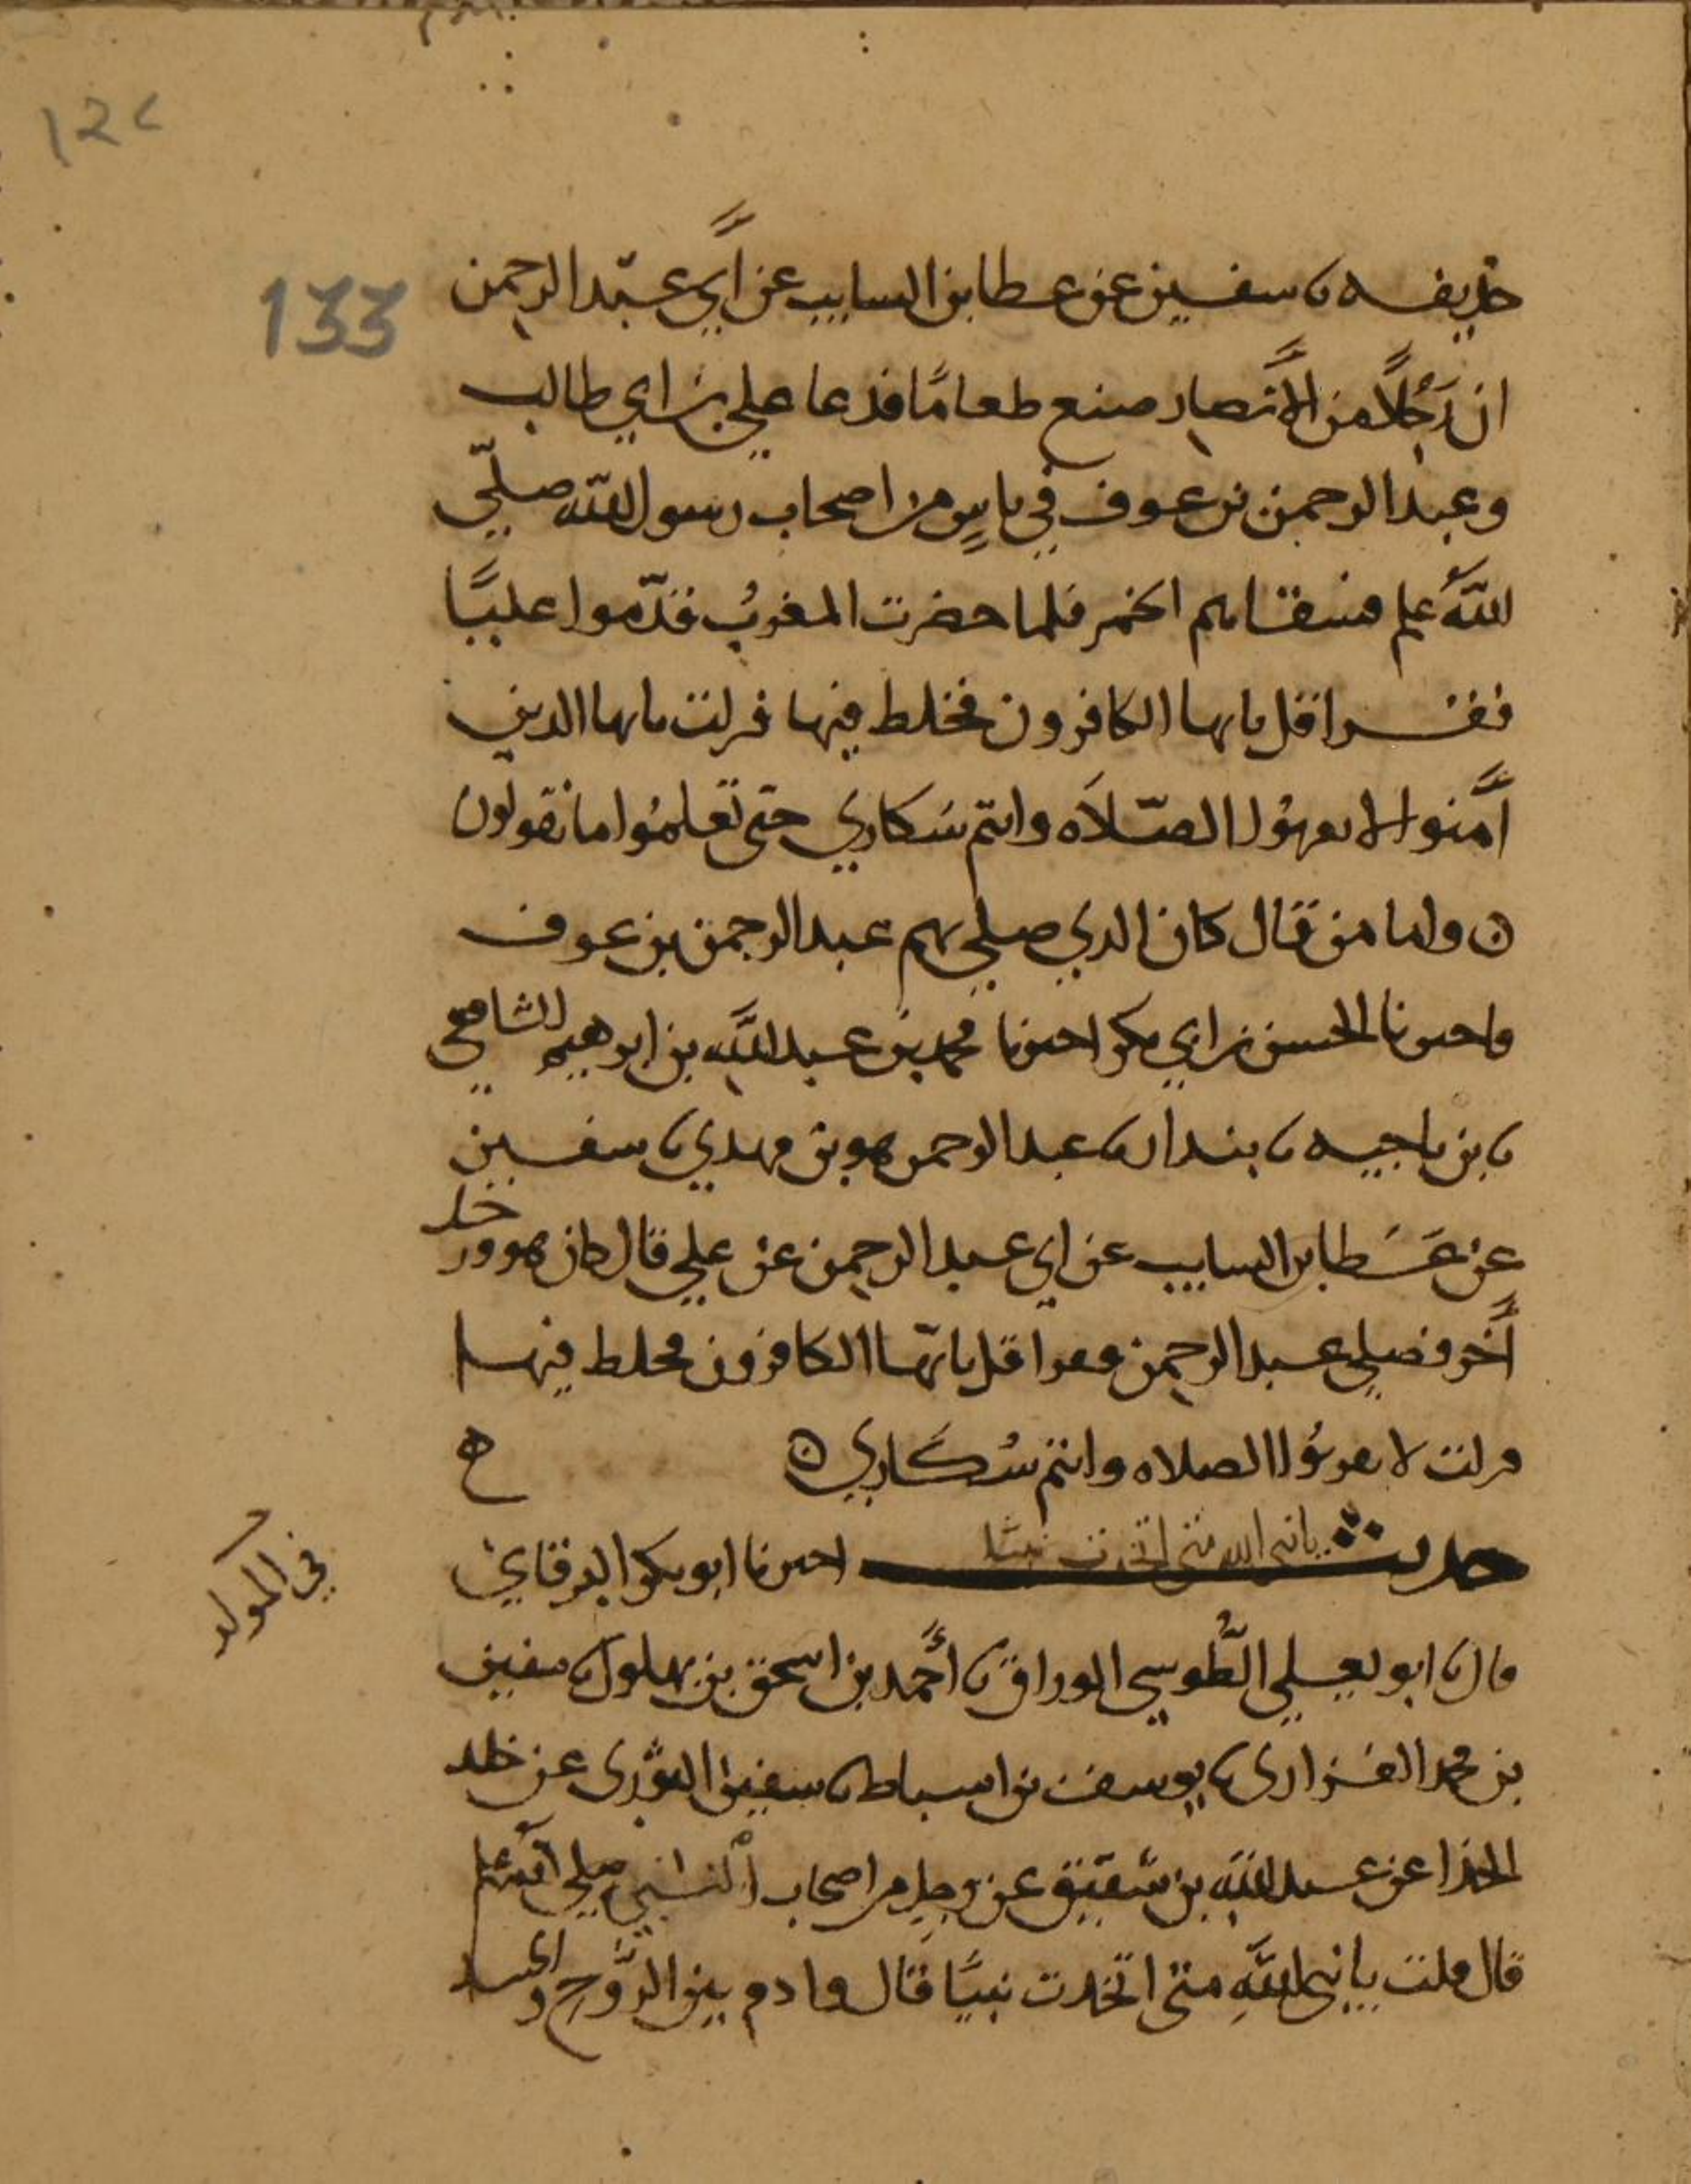 ١٢٤
133
حذيفه نا سفين عن عطا بن السايب عن أبي عبد الرحمن
ان رَجُلًا من الأنصار صنع طعامًا فدعا علي بن ابي طالب
وعبد الرحمن بن عوف في ناسٍ من اصحاب رسول الله صلّي
اللهُ علم فسقاهم الخمر فلما حضرت المغربُ فقدّموا عليًّا
فقرا قل يايها الكافرون فخلط فيها فنزلت يايها الذين
أمنوا لا تقربُوا الصّلاَه وانتم سُكاري حتى تعلمُوا ما تقولون
ن واما من قال كان الذي صلي بهم عبد الرحمن بن عوف
فاخبرنا الحسن بن ابي بكر اخبرنا محمد بن عبد اللَّه بن ابرهيم الشافعي
نا بن ناجيه نا بندار نا عبد الرحمن هو بن مهدي نا سفين
عن عَطا بن السايب عن ابي عبد الرحمن عن علي قال كان هو ورجل
أخر فصلي عبد الرحمن فقرا قل يايّها الكافرون فخلط فيها
فنزلت لا تقربُوا الصلاه وانتم سُكاري ن
ح
حديث يا نبي الله متى اتخذت نبيا اخبرنا ابو بكر البرقاني
في المولد
قال نا ابو يعلي الطُّوسي الوراق نا أحمد بن اسحق بن بهلول نا سفين
بن محمد الفزاري نا يوسف بن اسباط نا سفين الثوري عن خلد
الحذا عن عبد الله بن شَقيق عن رجلٍ من اصحاب النبي صلي الله علم
قال قلت يا نبي اللَّهِ متى اتخذت نبيًّا قال وادم بين الرُّوح والجسد